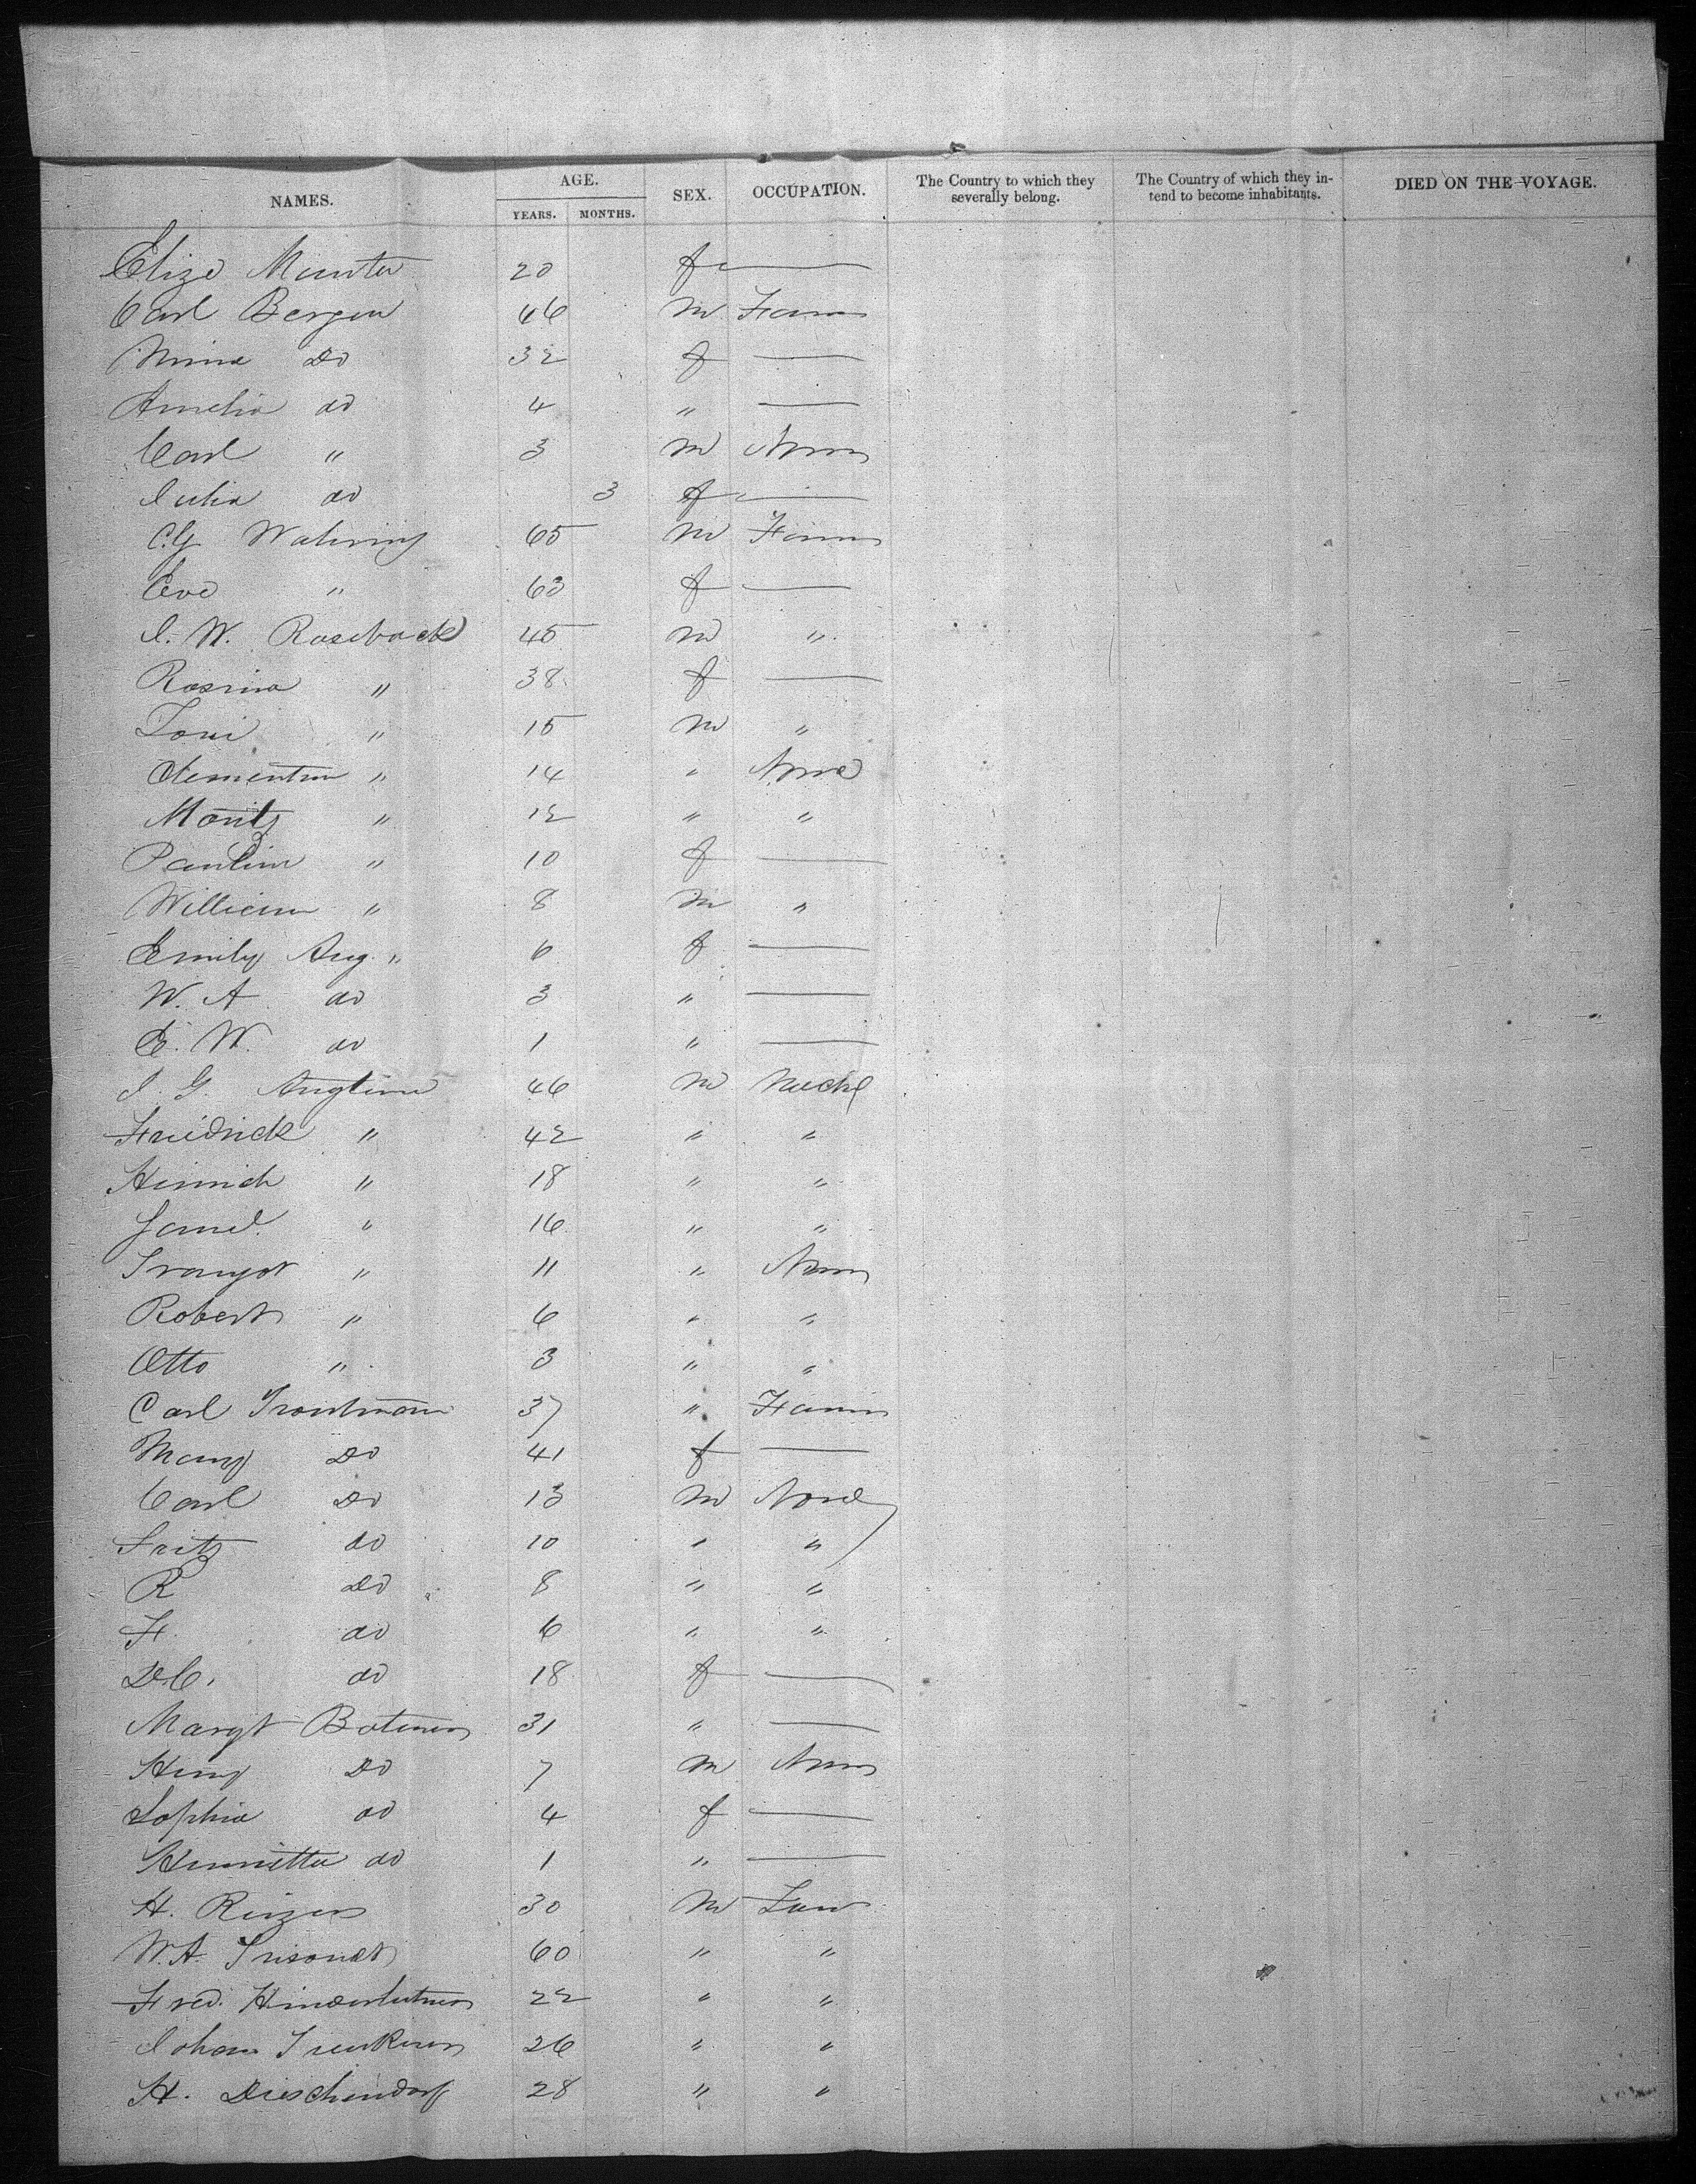 NAMES. AGE. YEARS. MONTHS. SEX. OCCUPATION. The Country to which they severally belong. The Country of which they intend to become inhabitants. DIED ON THE VOYAGE.
Elize Munter 20 f —
Carl Bergen 46 m Farm
Mina Do 32 f —
Amelia do 4 " —
Carl " 3 m None
Julia do 3 f —
C.G. 65 m Farm
Eva " 63 f —
J. W. Roseback 45 m "
Rosina " 38 f —
Loui " 15 m "
Clementin " 14 " None
Moritz " 12 " "
Paulin " 10 f —
William " 8 m "
Emily Aug. " 6 f —
W. A do 3 " —
E. W. do 1 " —
J. G. 46 m Mechc
Friedrick " 42 " "
Heinrich " 18 " "
" 16 " "
Traugot " 11 " None
Robert " 6 " "
Otto " 3 " "
Carl Troutmann 37 " Farm
Mary Do 41 f —
Carl Do 13 m None
Fritz do 10 " "
R Do 8 " "
F. do 6 " "
D.C. do 18 f —
Margt 31 " —
Henry Do 7 m None
Sophia do 4 f —
Henrietta do 1 " —
H. 30 m Farm
W.A. 60 " "
Fred. 22 " "
Johan 26 " "
H. Dieschendorf 28 " "